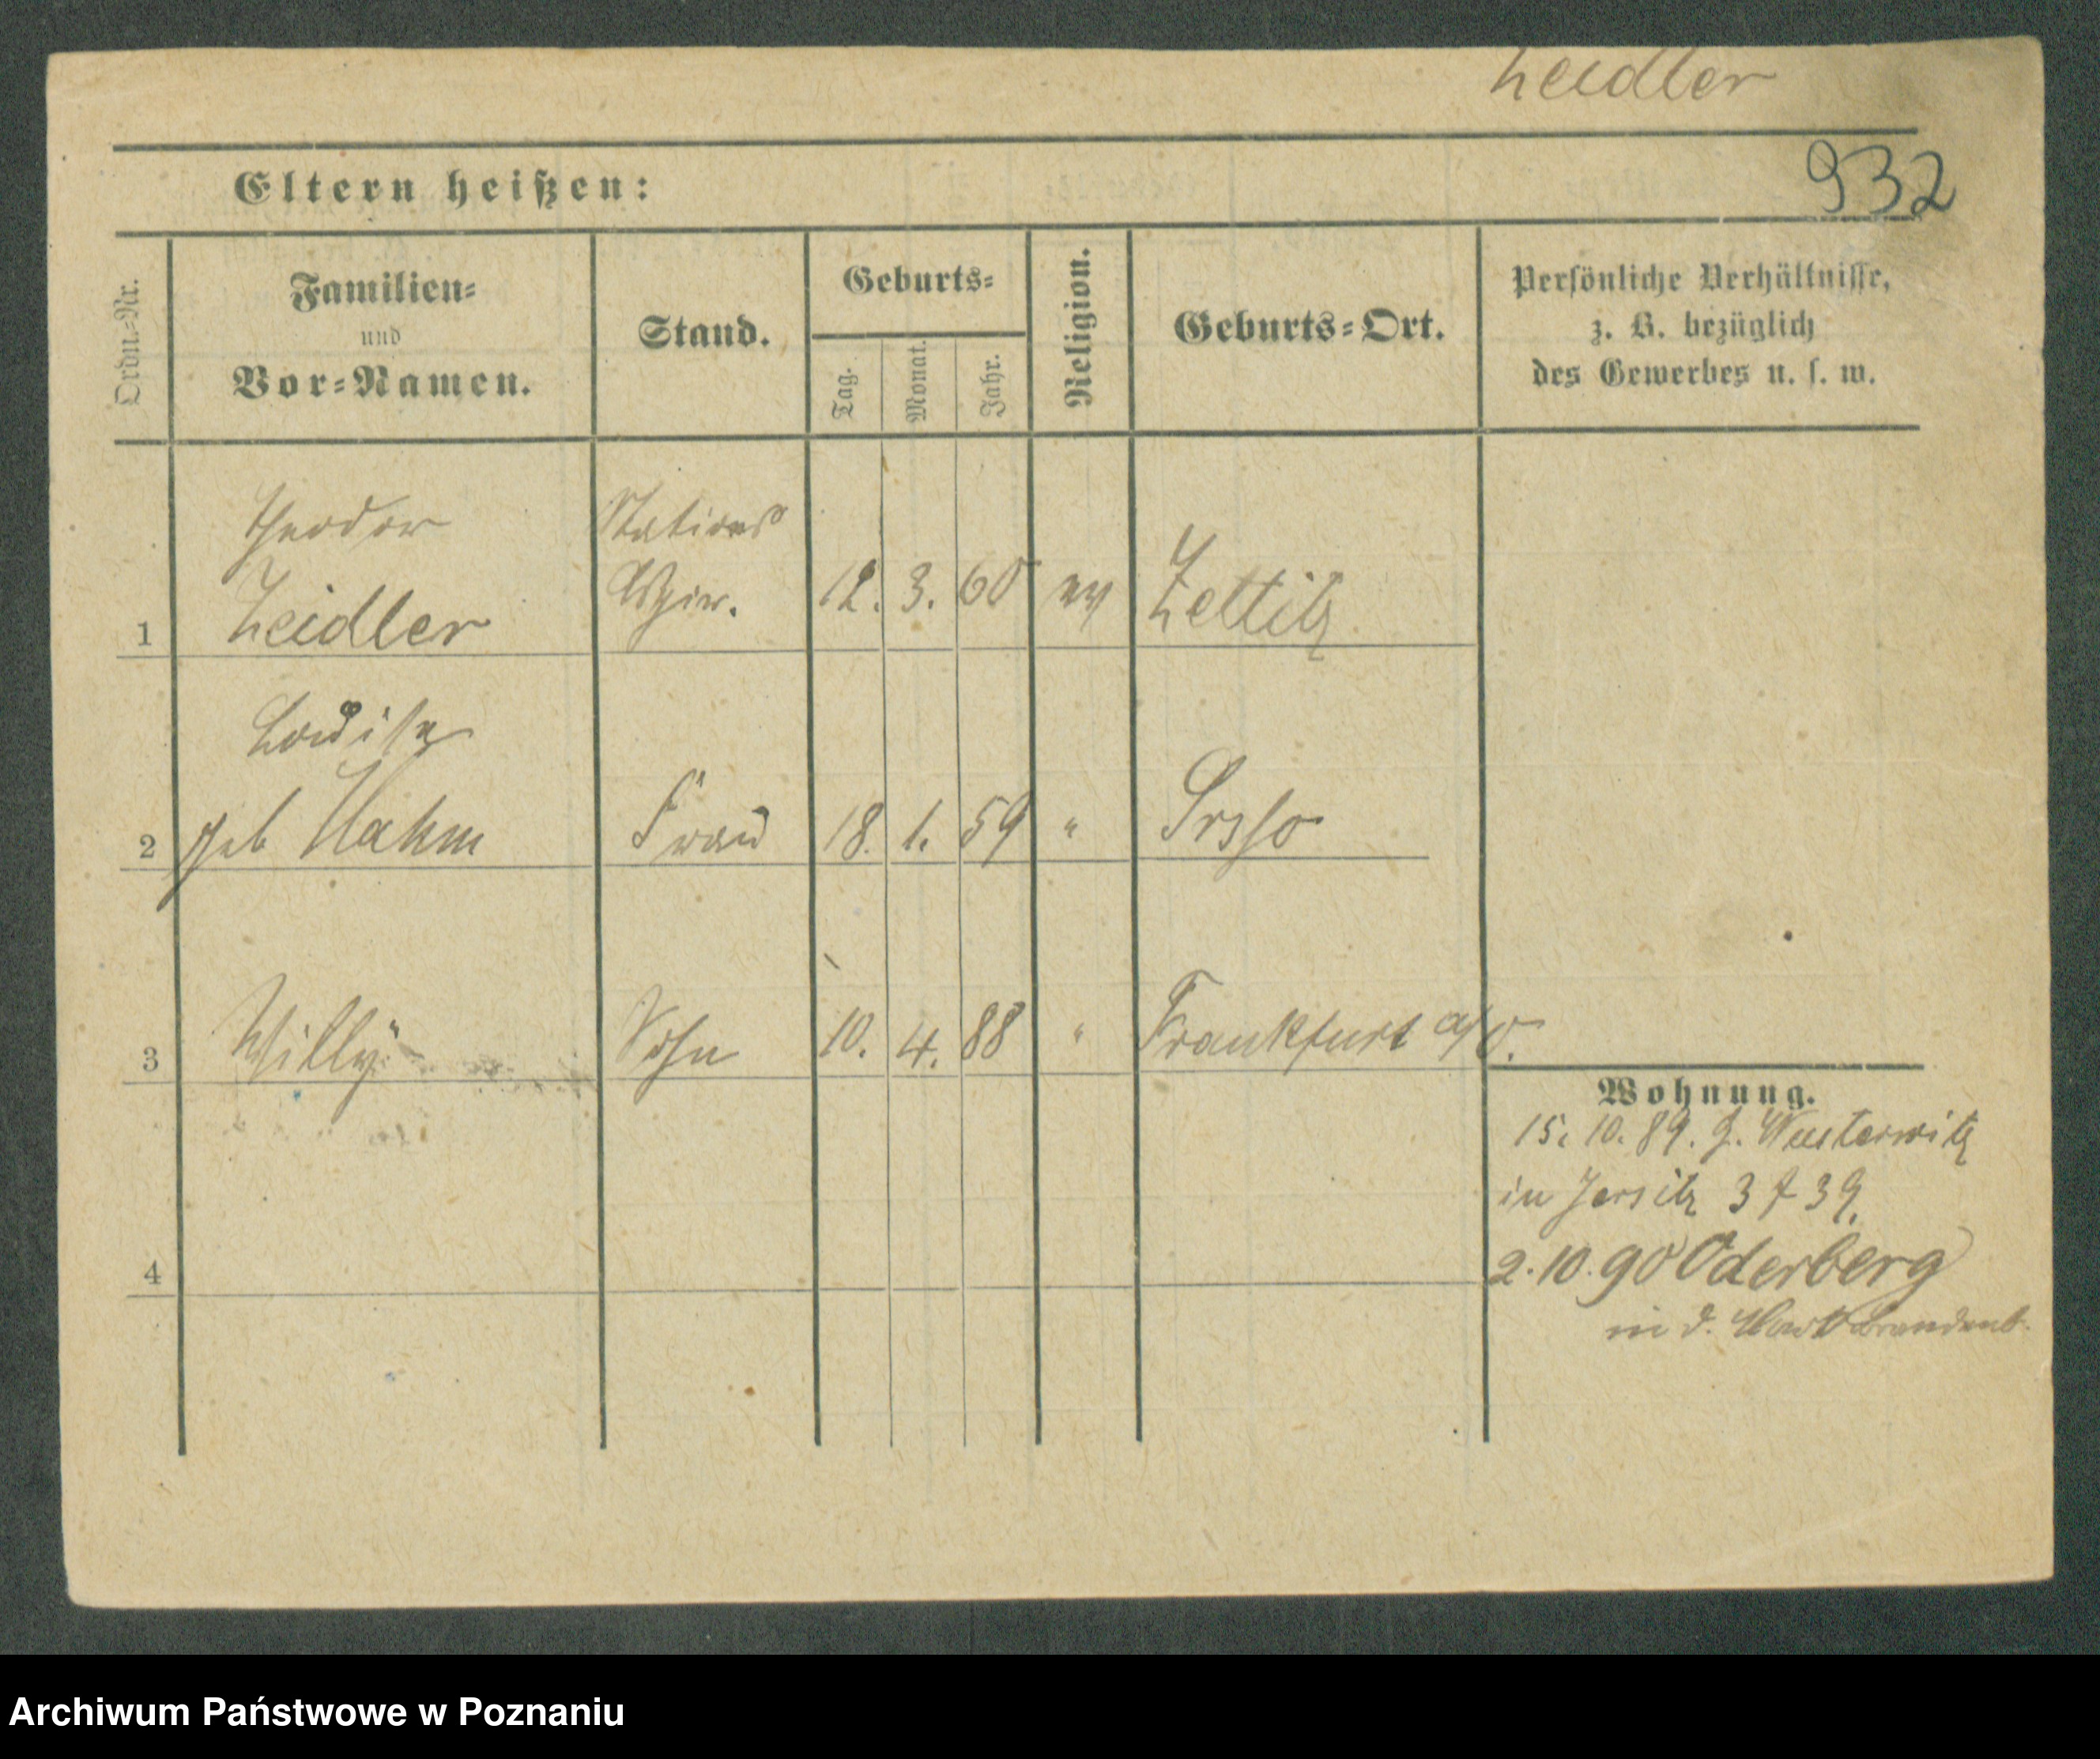 Zeidler
932
Eltern heißen:
Ordn.-Nr.
Familien-
und
Vor-Namen.
Stand.
Geburts-
Tag.
Monat.
Jahr.
Religion.
Geburts-Ort.
Persönliche Verhältnisse,
z. B. bezüglich
des Gewerbes u. s. w.
Theodor
Stations
1 Zeidler 12. 3. 60 ev Zettitz
Louise
2 geb Hahm Frau 18. 1. 59 "
3 Willy Sohn 10. 4. 88 " Frankfurt a/O.
Wohnung.
15. 10. 89. Z. Wusterwitz
in Jersitz 39.
4
2. 10. 90 Oderberg
in d. Mark Brandenb.
Archiwum Państwowe w Poznaniu